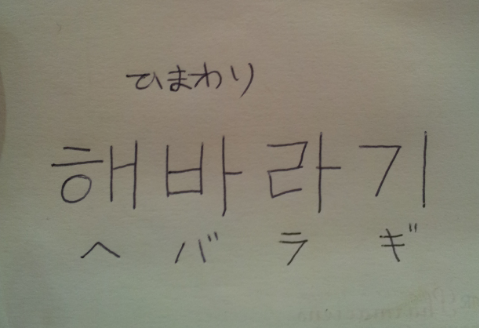 ひまわり
해바라기
ヘ バ ラ ギ